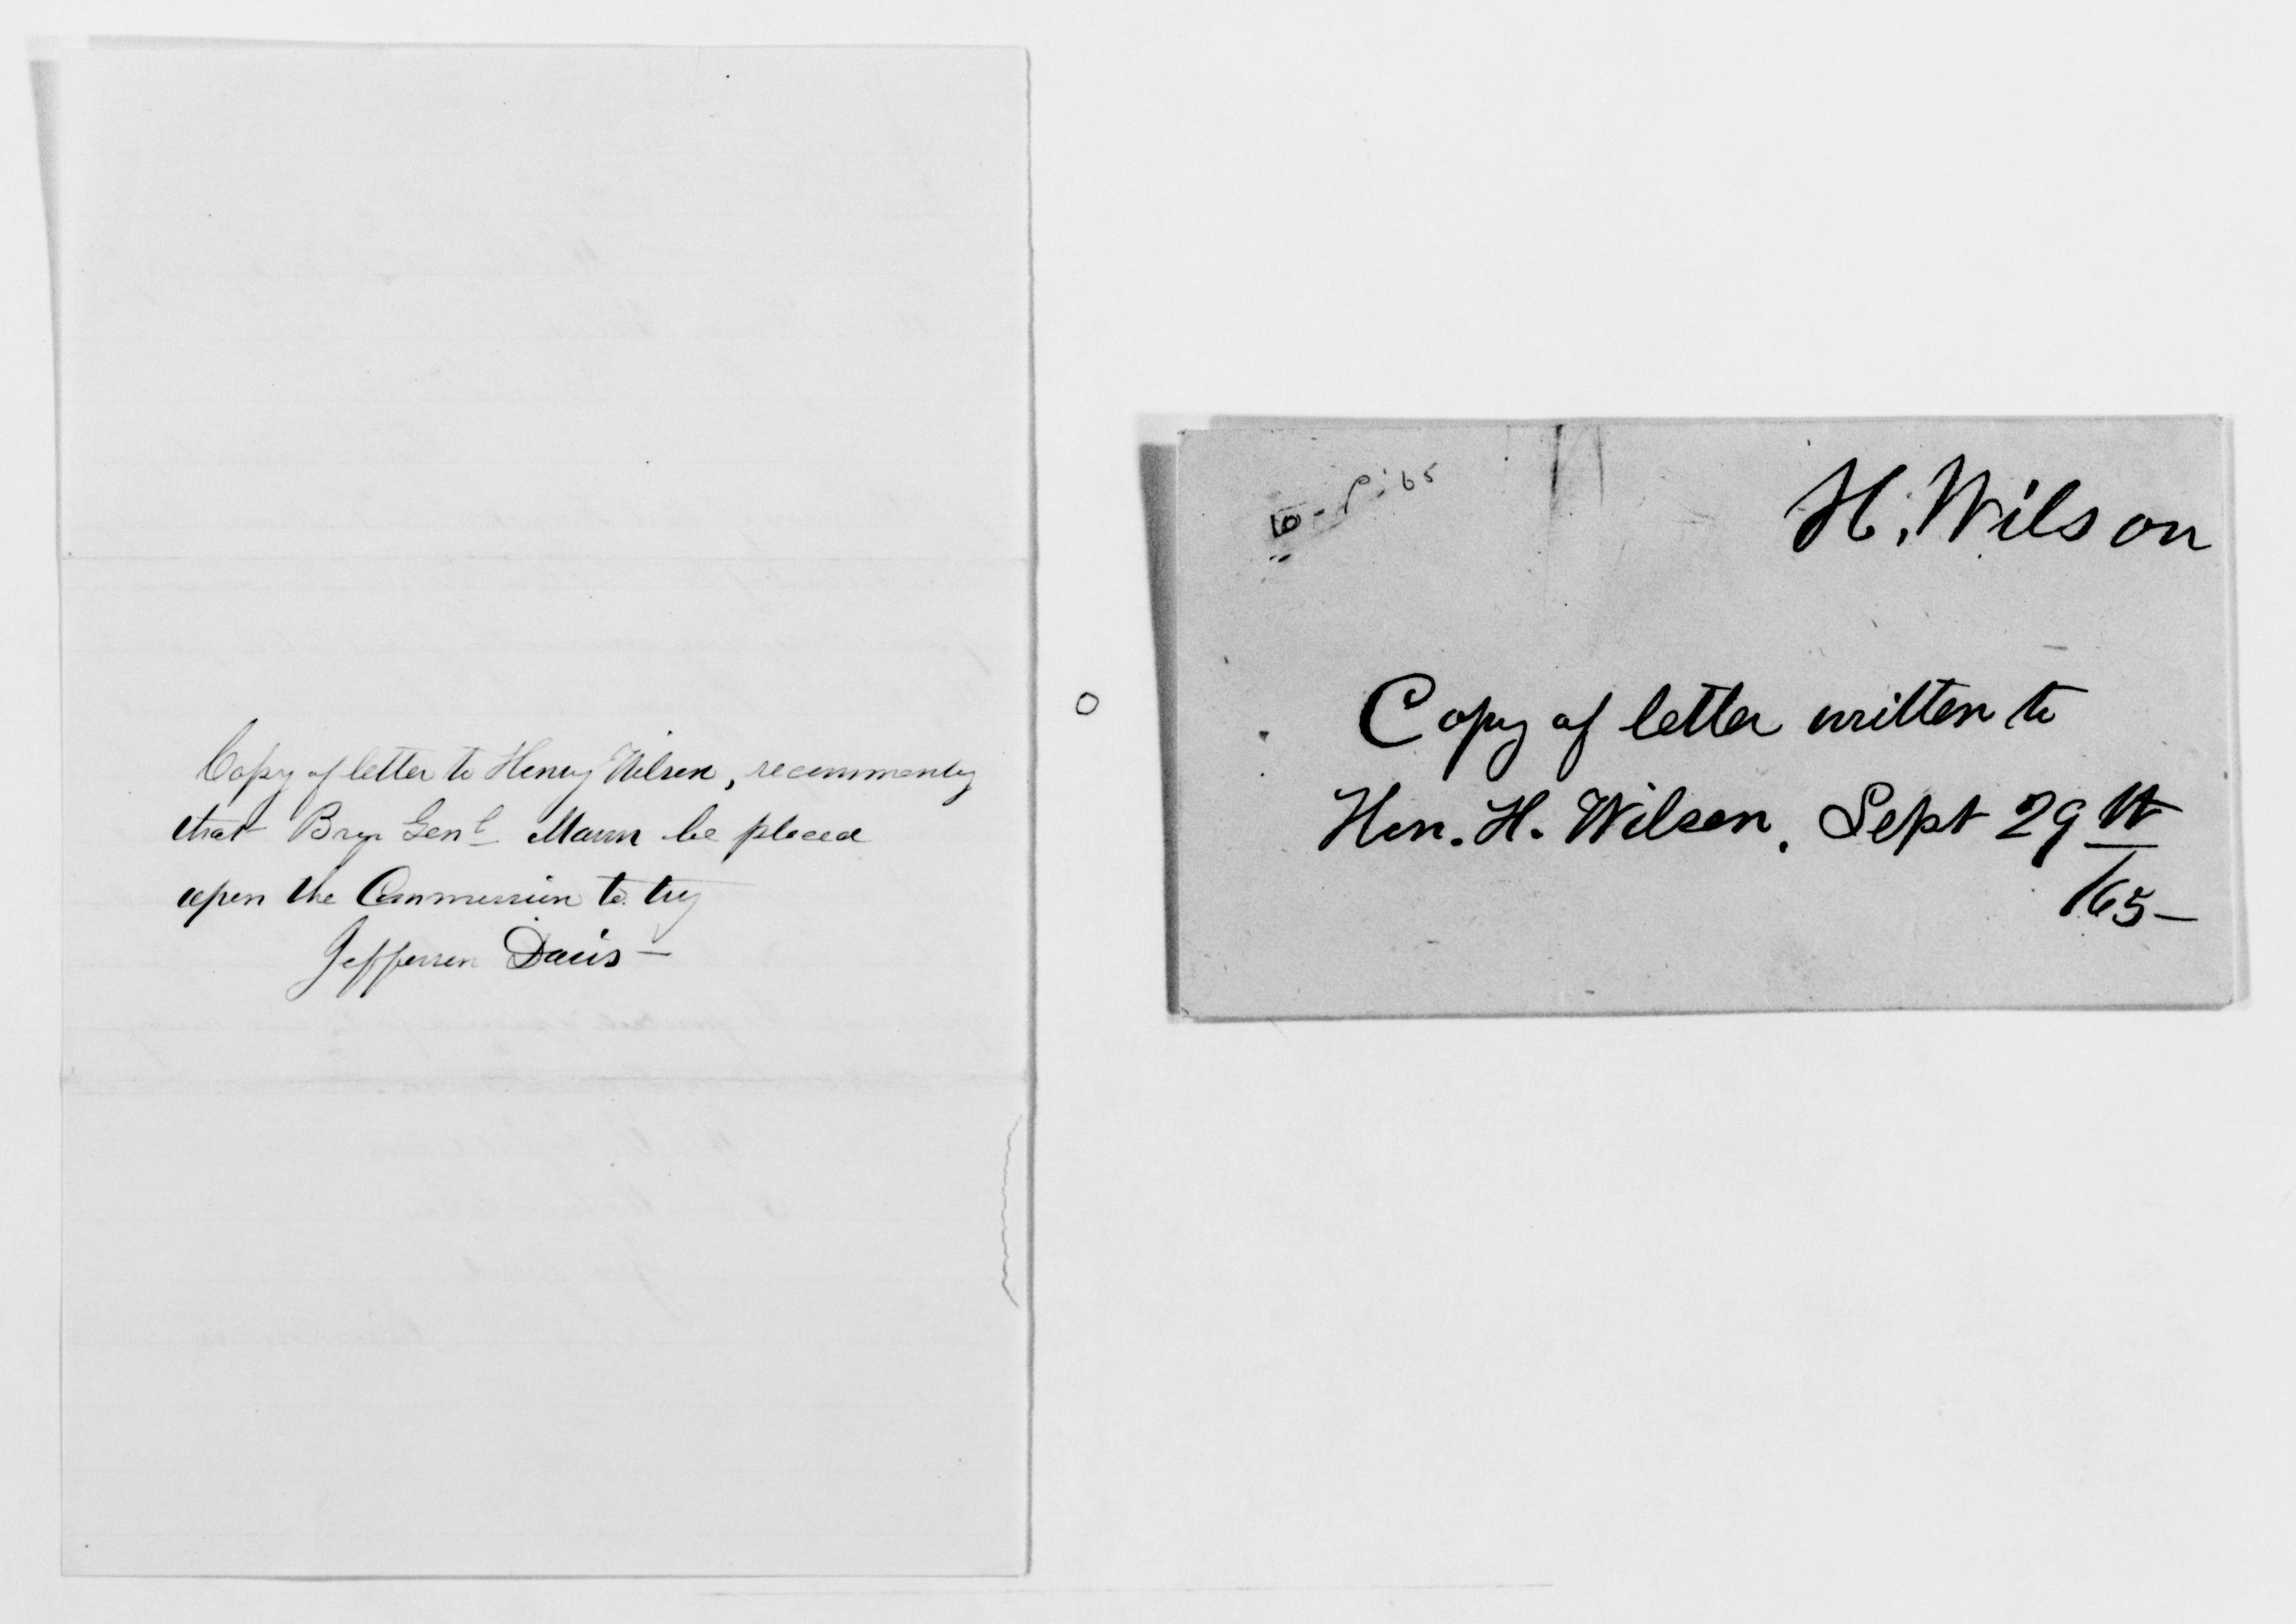 Copy of letter to Henry Wilson, recommendg
that Brig Genl Mann be placed
upon the Commission to try
Jefferson Davis —
H. Wilson
Copy of letter written to
Hon. H. Wilson, Sept 29th
/65 —